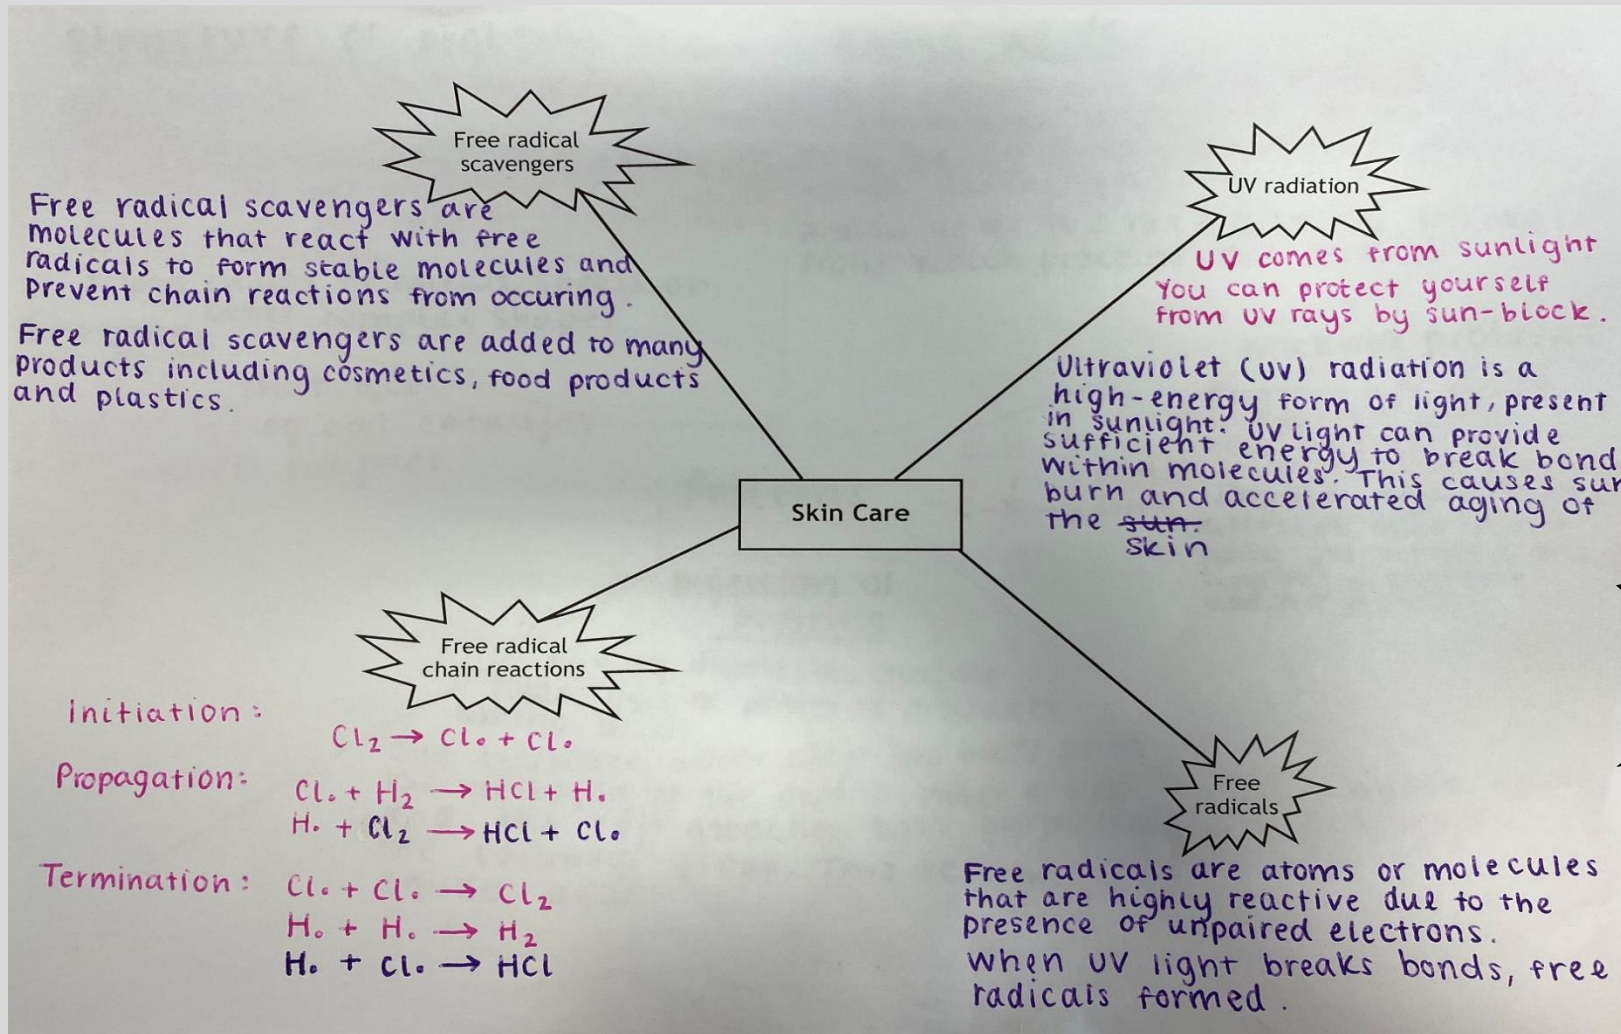 Free radical
scavengers
Free radical scavengers are
molecules that react with free
radicals to form stable molecules and
prevent chain reactions from occuring.
Free radical scavengers are added to many
products including cosmetics, food products
and plastics.
UV radiation
UV comes from sunlight
You can protect yourself
from UV rays by sun-block.
Ultraviolet (UV) radiation is a
high-energy form of light, present
in sunlight. UV light can provide
sufficient energy to break bond
within molecules. This causes sun
burn and accelerated aging of
the sun.
skin
Skin Care
Free radical
chain reactions
Initiation:
Cl₂ → Cl• + Cl•
Propagation:
Cl• + H₂ → HCl + H•
H• + Cl₂ → HCl + Cl•
Termination:
Cl• + Cl• → Cl₂
H• + H• → H₂
H• + Cl• → HCl
Free
radicals
Free radicals are atoms or molecules
that are highly reactive due to the
presence of unpaired electrons.
when UV light breaks bonds, free
radicals formed.